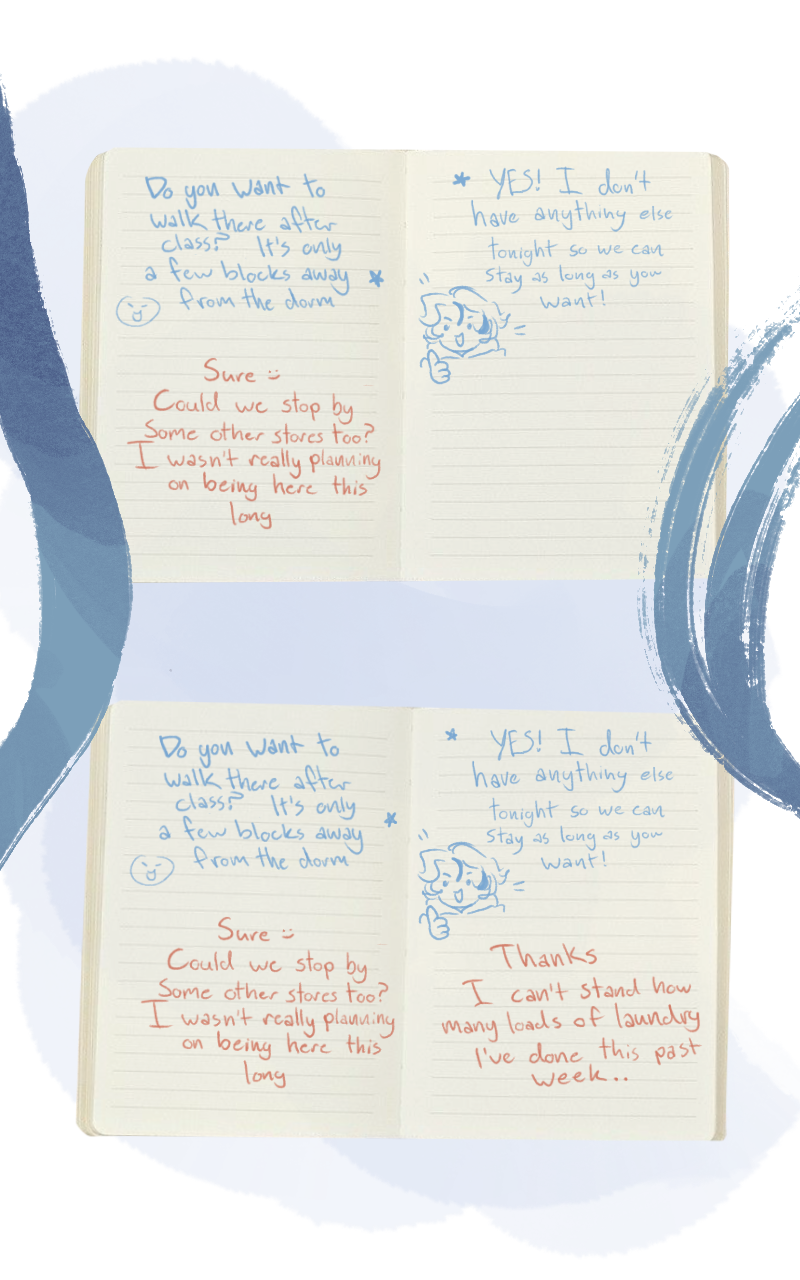 Do you want to
walk there after
class? It's only
a few blocks away
from the dorm
Sure :)
Could we stop by
Some other stores too?
I wasn't really planning
on being here this
long
YES! I don't
have anything else
tonight so we can
stay as long as you
want!
Do you want to
walk there after
class? It's only
a few blocks away
from the dorm
Sure :)
Could we stop by
Some other stores too?
I wasn't really planning
on being here this
long
YES! I don't
have anything else
tonight so we can
stay as long as you
want!
Thanks
I can't stand how
many loads of laundry
I've done this past
week..